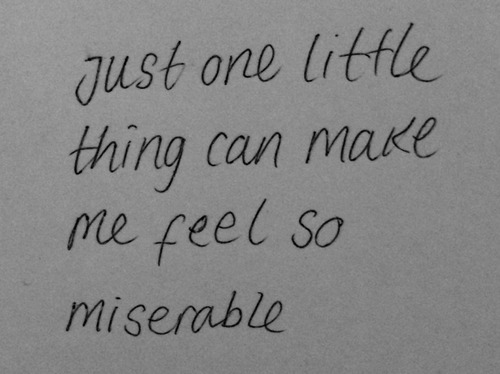 Just one little
thing can make
me feel so
miserable